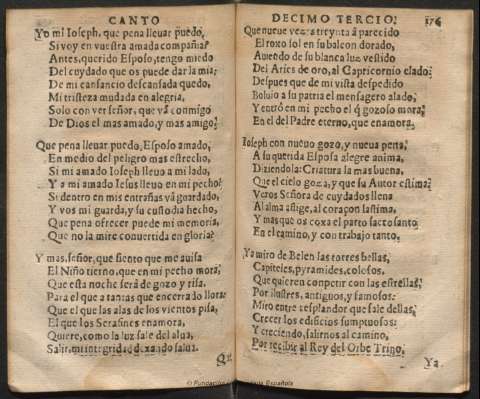 CANTO
Yo mi Ioseph, que pena lleuar puedo,
Si voy en vuestra amada compañia?
Antes, querido Esposo, tengo miedo
Del cuydado que os puede dar la mia:
De mi cansancio descansada quedo,
Mi tristeza mudada en alegria,
Solo con ver señor, que và conmigo
De Dios el mas amado, y mas amigo?
Que pena lleuar puedo, Esposo amado,
En medio del peligro mas estrecho,
Si mi amado Ioseph lleuo a mi lado,
Y a mi amado Iesus lleuo en mi pecho?
Si dentro en mis entrañas vá guardado,
Y vos mi guarda, y su custodia hecho,
Que pena ofrecer puede mi memoria,
Que no la mire conuertida en gloria?
Y mas, señor, que siento que me auisa
El Niño tierno, que en mi pecho mora,
Que esta noche serà de gozo y risa,
Para el que a tantas que encerrado llora:
El que el las alas de los vientos pisa,
El que los Serafines enamora,
Quiere, como la luz sale del alua,
Salir, mi integridad dexando salua.
Que
DECIMO TERCIO.
176
Que nueue vezes treynta à parecido
El roxo sol en su balcon dorado,
Auiendo de su blanca luz vestido
Del Aries de oro, al Capricornio elado:
Despues que de mi vista despedido
Boluio a su patria el mensagero alado,
Y entrò en mi pecho el q̃ gozoso mora,
En el del Padre eterno, que enamora.
Ioseph con nueuo gozo, y nueua pena,
A su querida Esposa alegre anima,
Diziendola: Criatura la mas buena,
Que el cielo goza, y que su Autor estima,
Veros Señora de cuydados llena
Al alma aflige, al coraçon lastima,
Y mas que os coxa el parto sacrosanto
En el camino, y con trabajo tanto.
Ya miro de Belen las torres bellas,
Capiteles, pyramides, colosos,
Que quieren competir con las estrellas,
Por ilustres, antiguos, y famosos:
Miro entre resplandor que sale dellas,
Crecer los edificios sumptuosos:
Y creciendo, salirnos al camino,
Por recibir al Rey del Orbe Trino,
Ya